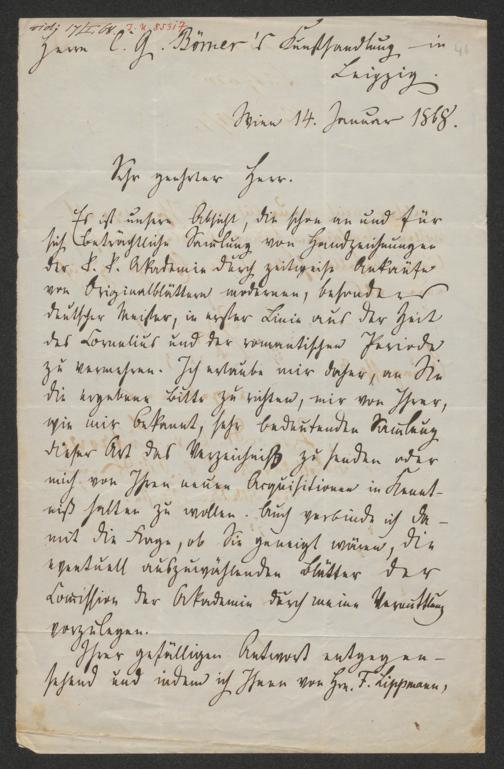 vidi 17/I. 68. J. N. 85317
Herrn C. G. Börner's Kunsthandlung in
46
Leipzig.
Wien 14. Januar 1868.
Sehr geehrter Herr.
Es ist unsere Absicht, die schon an und für
sich beträchtliche Samlung von Handzeichnungen
der k. k. Akademie durch zeitweise Ankäufe
von Originalblättern moderner, besonders
deutscher Meister, in erster Linie aus der Zeit
des Cornelius und der romantischen Periode
zu vermehren. Ich erlaube mir daher, an Sie
die ergebene Bitte zu richten, mir von Ihrer,
wie mir bekannt, sehr bedeutenden Samlung
dieser Art das Verzeichniß zu senden oder
mich von Ihren neuen Acquisitionen in Kennt-
niß halten zu wollen. Auch verbinde ich da-
mit die Frage, ob Sie geneigt wären, die
eventuell auszuwählenden Blätter der
Comission der Akademie durch meine Vermittlung
vorzulegen.
Ihrer gefälligen Antwort entgegen-
sehend und indem ich Ihnen von Hrn. F. Lippmann,